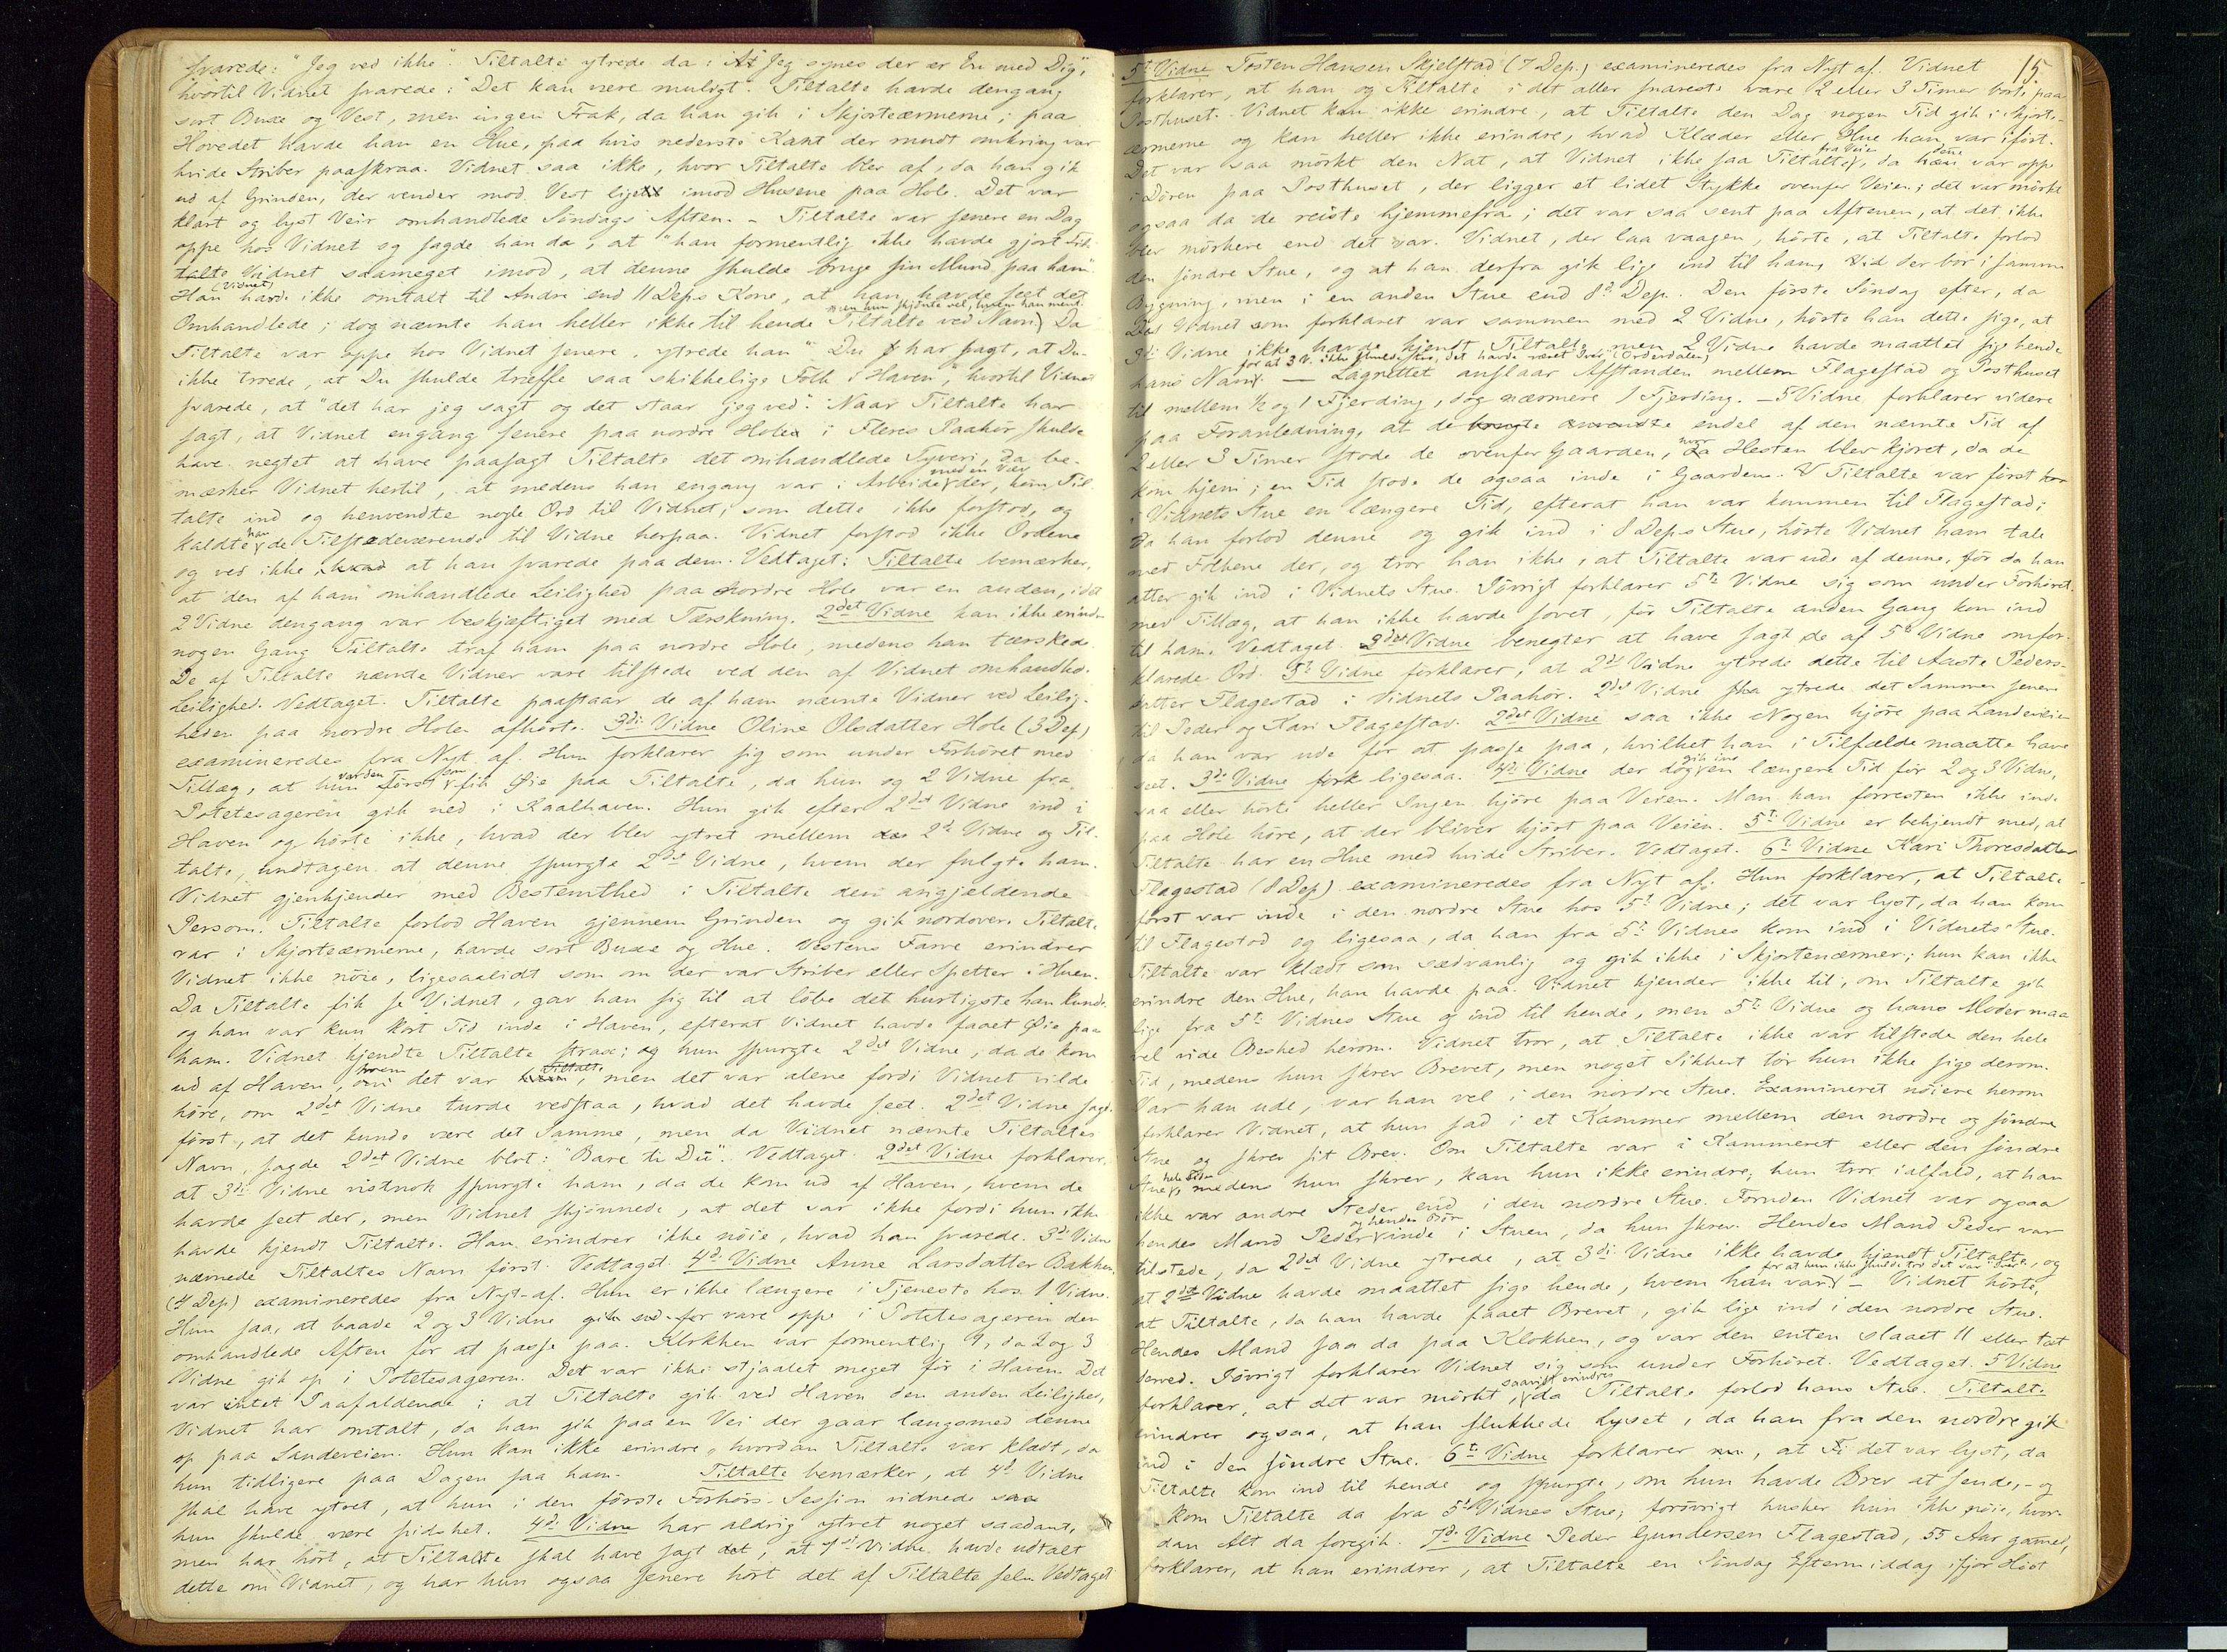 svarede: "Jeg ved ikke". Tiltalte ytrede da: "At Jeg synes der er En med Dig",
hvortil Vidnet svarede: "Det kan være muligt". Tiltalte havde dengang
sort Buxe og Vest, men ingen Frak, da han gik i Skjorteærmerne; paa
Hovedet havde han en Hue, paa hvis nederste Kant der rundt omkring var
hvide Striber paaskraa. Vidnet saa ikke, hvor Tiltalte blev af, da han gik
ud af Grinden, der vender mod Vest lige imod Husene paa Hole. Det var
klart og lyst Veir omhandlede Söndags Aften. - Tiltalte var senere en Dag
oppe hos Vidnet og sagde han da, at "han formentlig ikke havde gjort
Vidnet saameget imod, at denne skulde bruge sin Mund paa ham".
Han (Vidnet) havde ikke omtalt til Andre end 11 Deps Kone, at han havde seet det
Omhandlede; dog nævnte han heller ikke til hende Tiltalte ved Navn, men hun skjönte vel, hvem han mente. Da
Tiltalte var oppe hos Vidnet senere, ytrede han "Du har sagt, at Du
ikke troede, at Du skulde træffe saa skikkelige Folk i Haven", hvortil Vidnet
svarede, at "det har jeg sagt og det staar jeg ved". Naar Tiltalte har
sagt, at Vidnet engang senere paa nordre Hole i Fleres Paahör skulde
have negtet at have paasagt Tiltalte det omhandlede Tyveri, da be-
mærker Vidnet hertil, at medens han engang var i Arbeide med en der, kom Til-
talte ind og henvendte nogle Ord til Vidnet, som dette ikke forstod, og
kaldte han de Tilstedeværende til Vidne herpaa. Vidnet forstod ikke Ordene
og ved ikke, hvad at han svarede paa dem. Vedtaget: Tiltalte bemærker,
at den af ham omhandlede Leilighed paa Nordre Hole var en anden, idet
2 Vidne dengang var beskjæftiget med Tærskning. 2det Vidne kan ikke erindre
nogen Gang Tiltalte traf ham paa nordre Hole, medens han tærskede.
De af Tiltalte nævnte Vidner vare tilstede ved den af Vidnet omhandlede
Leilighed. Vedtaget. Tiltalte paastaar de af ham nævnte Vidner ved Leilig-
heden paa nordre Hole afhörte. 3die Vidne Oline Olsdatter Hole (3 Dep)
examineredes fra Nyt af. Hun forklarer sig som under Forhöret med
Tillæg, at hun först fik Öie paa Tiltalte, da hun og 2 Vidne fra
Potetesageren gik ned i Kaalhaven. Hun gik efter 2det Vidne ind i
Haven og hörte ikke, hvad der blev ytret mellem 2d Vidne og Til-
talte, undtagen at denne spurgte 2det Vidne, hvem der fulgte ham.
Vidnet gjenkjender med Bestemthed i Tiltalte den angjeldende
Person. Tiltalte forlod Haven gjennem Grinden og gik nordover. Tiltalte
var i Skjorteærmerne, havde sort Buxe og Hue. Vestens Farve erindrer
Vidnet ikke nöie, ligesaalidt som om der var Striber eller Spetter i Huen.
Da Tiltalte fik se Vidnet, gav han sig til at löbe det hurtigste han kunde
og han var kun kort Tid inde i Haven, efterat Vidnet havde faaet Öie paa
ham. Vidnet kjendte Tiltalte strax; og hun spurgte 2det Vidne, da de kom
ud af Haven, hvem det var Tiltalte, men det var alene fordi Vidnet vilde
höre, om 2det Vidne turde vedstaa, hvad det havde seet. 2det Vidne sagde
först, at det kunde være det Samme, men da Vidnet nævnte Tiltaltes
Navn, sagde 2det Vidne blot: "Bare ti Du". Vedtaget. 2det Vidne forklarer,
at 3die Vidne vistnok spurgte ham, da de kom ud af Haven, hvem de
havde seet der, men Vidnet skjönnede, at det var ikke fordi hun ikke
havde kjendt Tiltalte. Han erindrer ikke nöie, hvad han svarede. 3die Vidne
nævnede Tiltaltes Navn först. Vedtaget. 4de Vidne Anne Larsdatter Bakken
(4 Dep) examineredes fra Nyt af. Hun er ikke længere i Tjeneste hos 1 Vidne.
Hun saa, at baade 2 og 3 Vidne vare oppe i Potetesageren den
omhandlede Aften for at passe paa. Klokken var formentlig 9, da 2 og 3
Vidne gik op i Potetesageren. Det var ikke stjaalet meget för i Haven. Det
var intet Paafaldende i at Tiltalte gik ved Haven den anden Leilighed,
Vidnet har omtalt, da han gik paa en Vei der gaar langsmed denne
op paa Landeveien. Hun kan ikke erindre, hvordan Tiltalte var klædt, da
hun tidligere paa Dagen saa ham. Tiltalte bemærker, at 4de Vidne
skal have ytret, at hun i den förste Forhörs-Session vidnede saa
hun skulde være pidsket. 4de Vidne har aldrig ytret noget saadant,
men har hört, at Tiltalte skal have sagt, at 1ste Vidne havde udtalt
dette om Vidnet, og har hun ogsaa senere hört det af Tiltalte selv. Vedtaget
15.
5te Vidne Tosten Hansen Skjelstad (7 Dep.) examineredes fra Nyt af. Vidnet
forklarer, at han og Tiltalte i det aller snareste vare 2 eller 3 Timer borte paa
Posthuset. Vidnet kan ikke erindre, at Tiltalte den Dag nogen Tid gik i skjorte-
ærmerne og kan heller ikke erindre, hvad Klæder eller Hue han var iført.
Det var saa mörkt den Nat, at Vidnet ikke saa Tiltalte fra Veien, da denne var oppe
i Dören paa Posthuset, der ligger et lidet Stykke ovenfor Veien; det var mörkt
ogsaa da de reiste hjemmefra; det var saa sent paa Aftenen, at det ikke
blev mörkere end det var. Vidnet, der laa vaagen, hörte, at Tiltalte forlod
den söndre Stue, og at han derfra gik lige ind til ham, Vid der bor i samme
Bygning, men i en anden Stue end 8de Dep. Den förste Söndag efter, da
Vidnet som forklaret var sammen med 2 Vidne, hörte han dette sige, at
3die Vidne ikke havde kjendt Tiltalte, men 2 Vidne havde maattet sige hende
hans Navn, for at 3 V. ikke skulde tro, det havde været Iver (Orderdalen) — Lagrettet anslaar Afstanden mellem Flagestad og Posthuset
til mellem ½ og 1 Fjerding, dog nærmere 1 Fjerding. — 5 Vidne forklarer videre
paa Foranledning, at de anvendte endel af den nævnte Tid af
2 eller 3 Timer stode de ovenfor Gaarden, hvor Hesten blev kjöret, da de
kom hjem; en Tid stode de ogsaa inde i Gaarden. Tiltalte var först
i Vidnets Stue en længere Tid, efterat han var kommen til Flagestad;
da han forlod denne og gik ind i 8 Deps Stue, hörte Vidnet ham tale
med Folkene der, og tror han ikke, at Tiltalte var ude af denne, för da han
atter gik ind i Vidnets Stue. Iövrigt forklarer 5te Vidne sig som under Forhöret
med Tillæg, at han ikke havde sovet, för Tiltalte anden Gang kom ind
til ham. Vedtaget. 2det Vidne benegter at have sagt de af 5te Vidne omfor-
klarede Ord. 5te Vidne forklarer, at 2det Vidne ytrede dette til Aaste Peders-
datter Flagestad i Vidnets Paahör. 2det Vidne ytrede det Samme senere
til Peder og Kari Flagestad. 2det Vidne saa ikke Nogen kjöre paa Landeveien
da han var ude for at passe paa, hvilket han i Tilfælde maatte have
seet. 3die Vidne ligesaa. 4de Vidne der dog gik ind en længere Tid för 2 og 3 Vidne,
saa eller hörte heller Ingen kjöre paa Veien. Man kan forresten ikke inde
paa Hole höre, at der bliver kjört paa Veien. 5te Vidne er bekjendt med, at
Tiltalte har en Hue med hvide Striber. Vedtaget. 6te Vidne Kari Thoresdatter
Flagestad (8 Dep) examineredes fra Nyt af. Hun forklarer, at Tiltalte
först var inde i den nordre Stue hos 5te Vidne; det var lyst, da han kom
til Flagestad og ligesaa, da han fra 5te Vidnes kom ind i Vidnets Stue.
Tiltalte var klædt som sædvanlig og gik ikke i Skjorteærmer; hun kan ikke
erindre den Hue, han havde paa. Vidnet kjender ikke til, om Tiltalte gik
lige fra 5te Vidnes Stue og ind til hende, men 5te Vidne og hans Moder maa
vel vide Besked herom. Vidnet tror, at Tiltalte ikke var tilstede den hele
Tid, medens hun skrev Brevet, men noget Sikkert tör hun ikke sige derom.
Var han ude, var han vel i den nordre Stue. Examineret nöiere herom
forklarer Vidnet, at hun sad i et Kammer mellem den nordre og söndre
Stue og skrev sit Brev. Om Tiltalte var i Kammeret eller den söndre
Stue hele Tiden, medens hun skrev, kan hun ikke erindre; hun tror ialfald, at han
ikke var andre Steder end i den nordre Stue. Foruden Vidnet var ogsaa
hendes Mand Peder og hendes Bör inde i Stuen, da hun skrev. Hendes Mand Peder var
tilstede, da 2det Vidne ytrede, at 3die Vidne ikke havde kjendt Tiltalte, og
at 2det Vidne havde maattet sige hende, hvem han var, for at hun ikke skulde tro det var Iver — Vidnet hörte,
at Tiltalte, da han havde faaet Brevet, gik lige ind i den nordre Stue.
Hendes Mand saa da paa Klokken, og var den enten slaaet 11 eller tæt
derved. Iövrigt forklarer Vidnet sig som under Forhöret. Vedtaget. 5 Vidne
forklarer, at det var mörkt, saavidt erindres, da Tiltalte forlod hans Stue. Tiltalte
erindrer ogsaa, at han slukkede Lyset, da han fra den nordre gik
ind i den söndre Stue. 6te Vidne forklarer, at det var lyst, da
Tiltalte kom ind til hende og spurgte, om hun havde Brev at sende, - og
kom Tiltalte da fra 5te Vidnes Stue; forövrigt husker hun ikke nöie, hvor-
dan Alt da foregik. 7de Vidne Peder Gundersen Flagestad, 55 Aar gamel,
forklarer, at han erindrer, at Tiltalte en Söndag Eftermiddag ifjor Höst